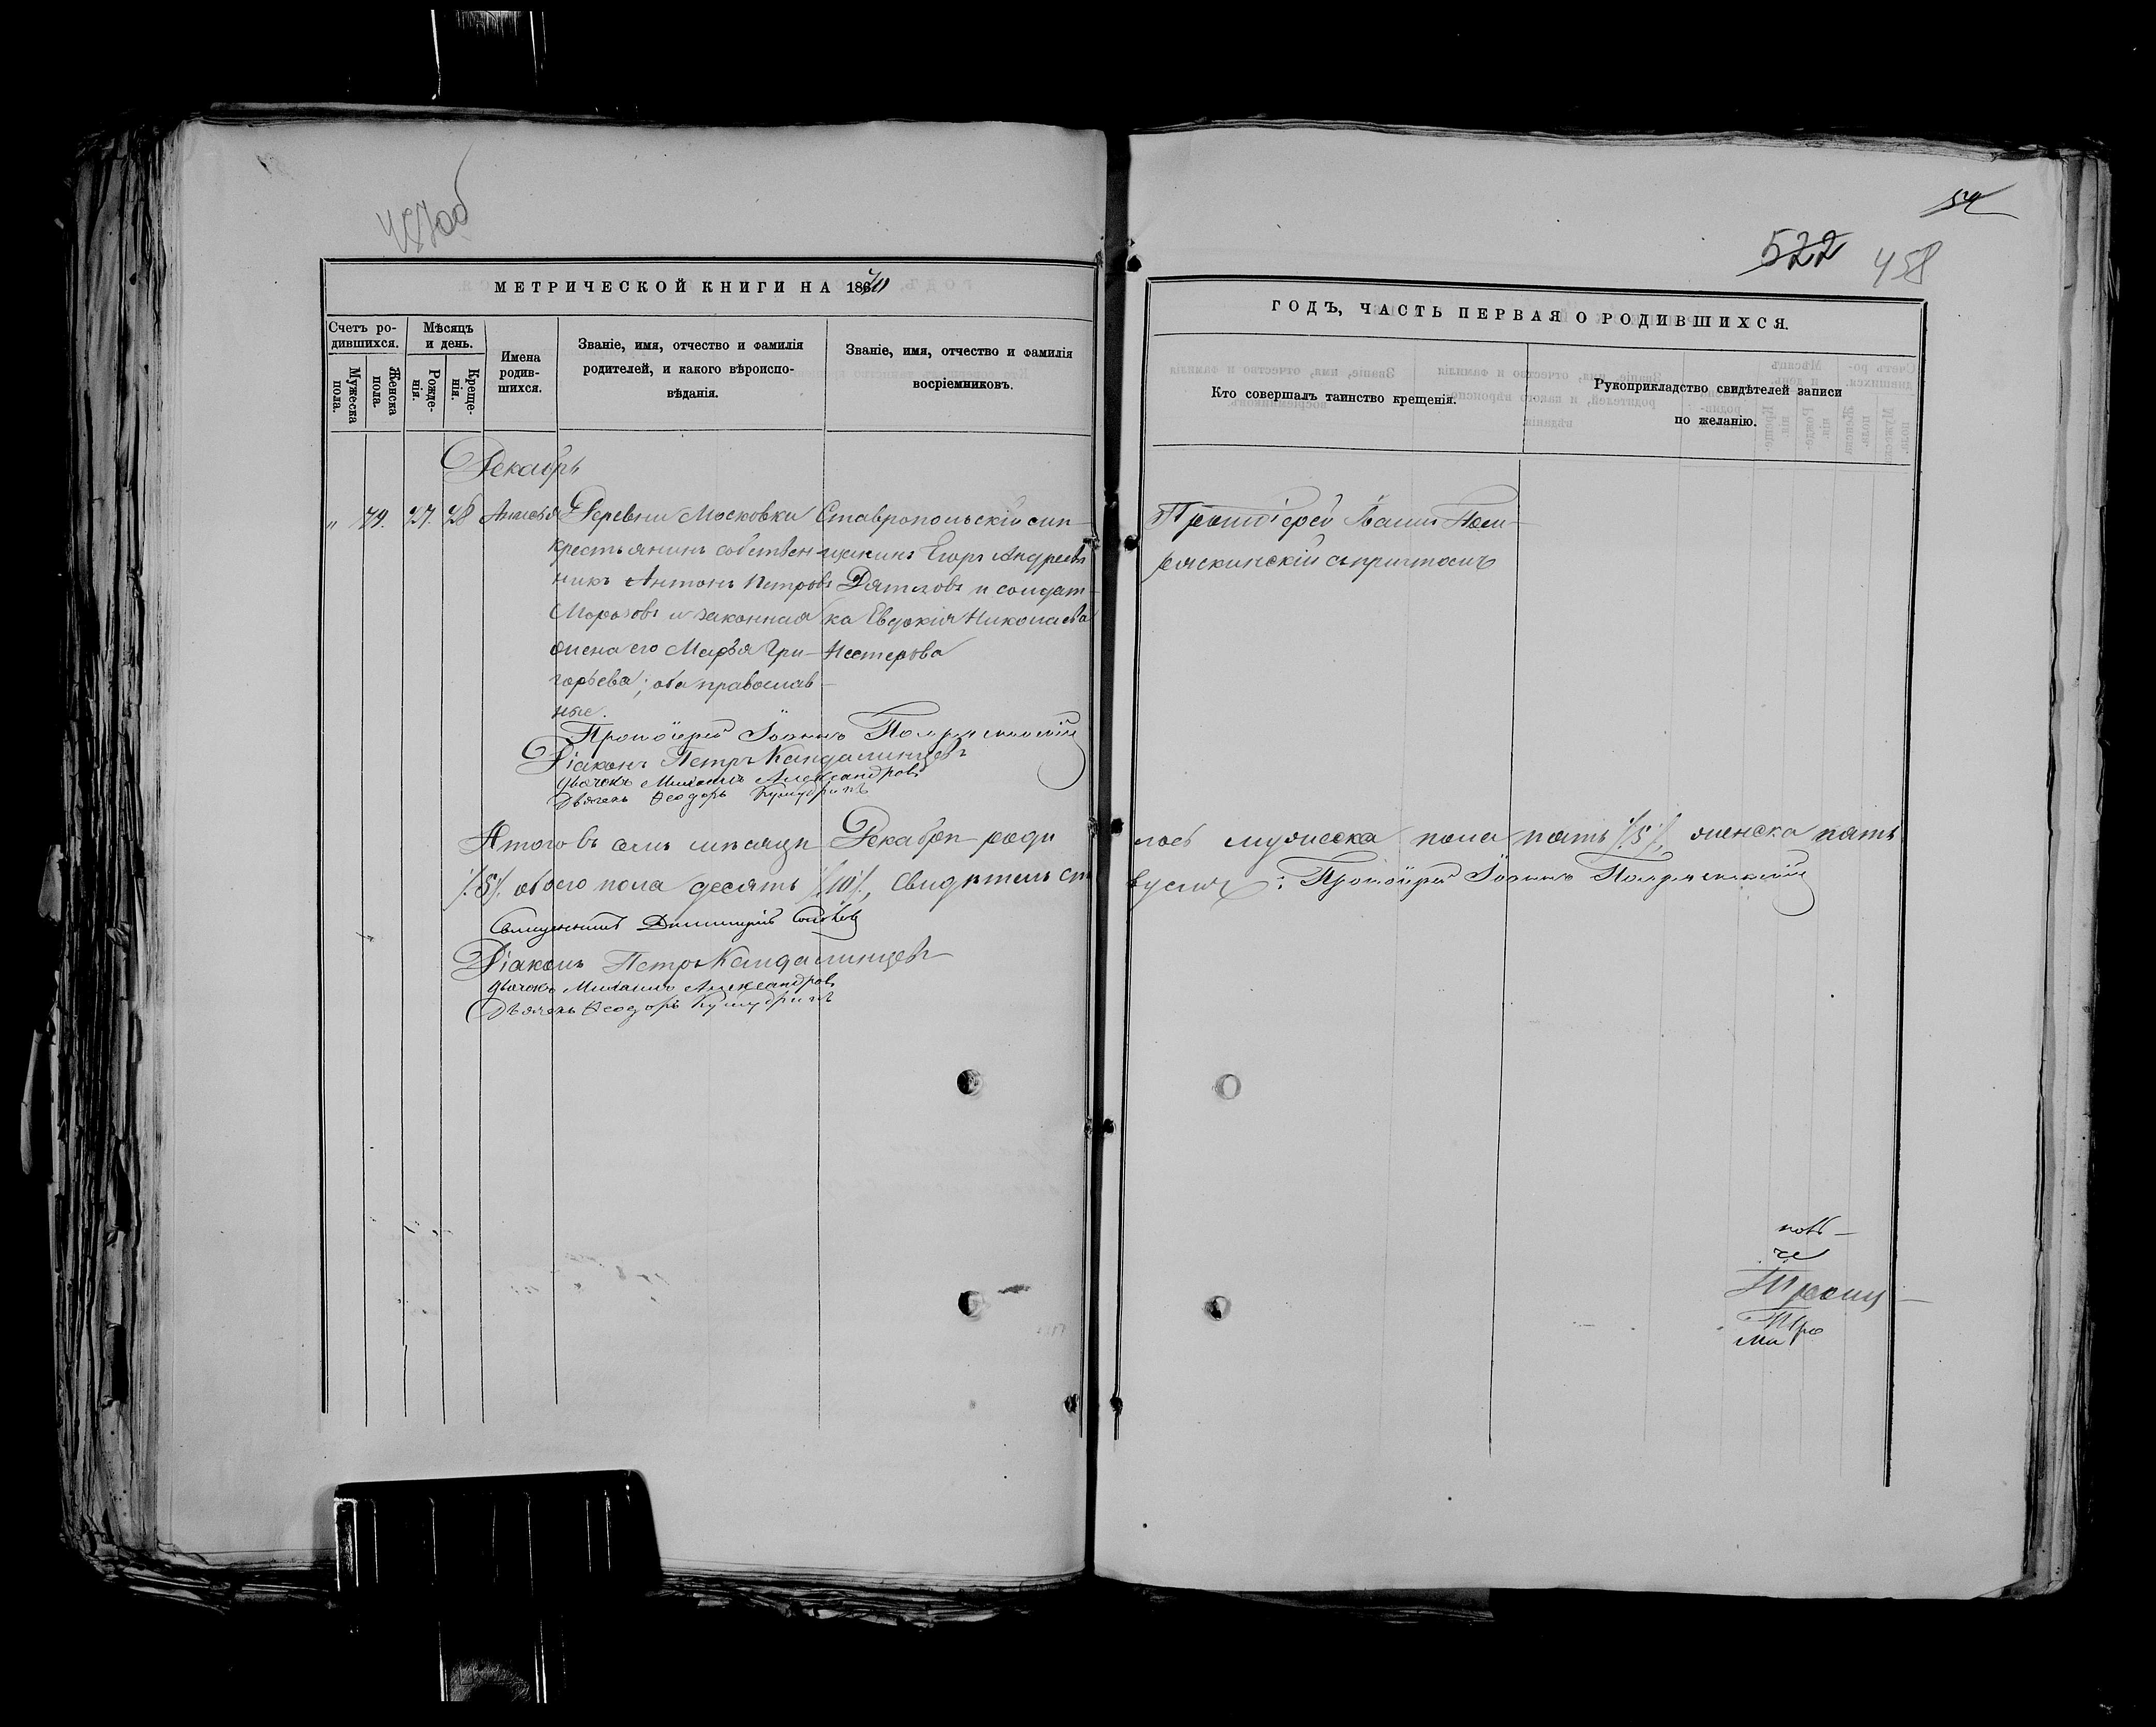 457об
54
522 458
МЕТРИЧЕСКОЙ КНИГИ НА 1870
ГОДЪ, ЧАСТЬ ПЕРВАЯ О РОДИВШИХСЯ.
Счетъ ро-
дившихся.
Мужеска
пола.
Женска
пола.
Мѣсяцъ
и день.
Рожде-
нія.
Креще-
нія.
Имена
родив-
шихся.
Званіе, имя, отчество и фамилія
родителей, и какого вѣроиспо-
вѣданія.
Званіе, имя, отчество и фамилія
воспріемниковъ.
Кто совершалъ таинство крещенія.
Рукоприкладство свидѣтелей записи
по желанію.
Декабрь
" 79. 27. 28 Анисья
Деревни Московки
крестьянинъ собствен-
никъ Антонъ Петровъ
Морозовъ и законная
жена его Марья Гри-
горьева; оба православ-
ные.
Ставропольскій
Егоръ Андреевъ
Дятловъ и солдат-
ка Евдокія Николаева
Нестерова
Протоіерей Іоаннъ
съ причтомъ
Протоіерей Іоаннъ
Діаконъ Петръ Кандалинцевъ
Дьячокъ Михаилъ Александровъ
Дьячекъ Ѳеодоръ
Итого въ семъ мѣсяцѣ Декабрѣ роди
лось мужеска пола пять /5/, женска пять
/5/. обоего пола десять /10/, Свидѣтельст
вуемъ: Протоіерей Іоаннъ
Священникъ Димитрій
Діаконъ Петръ Кандалинцевъ
Дьячокъ Михаилъ Александровъ
Дьячекъ Ѳеодоръ
че
Троиц
Тро
Ма